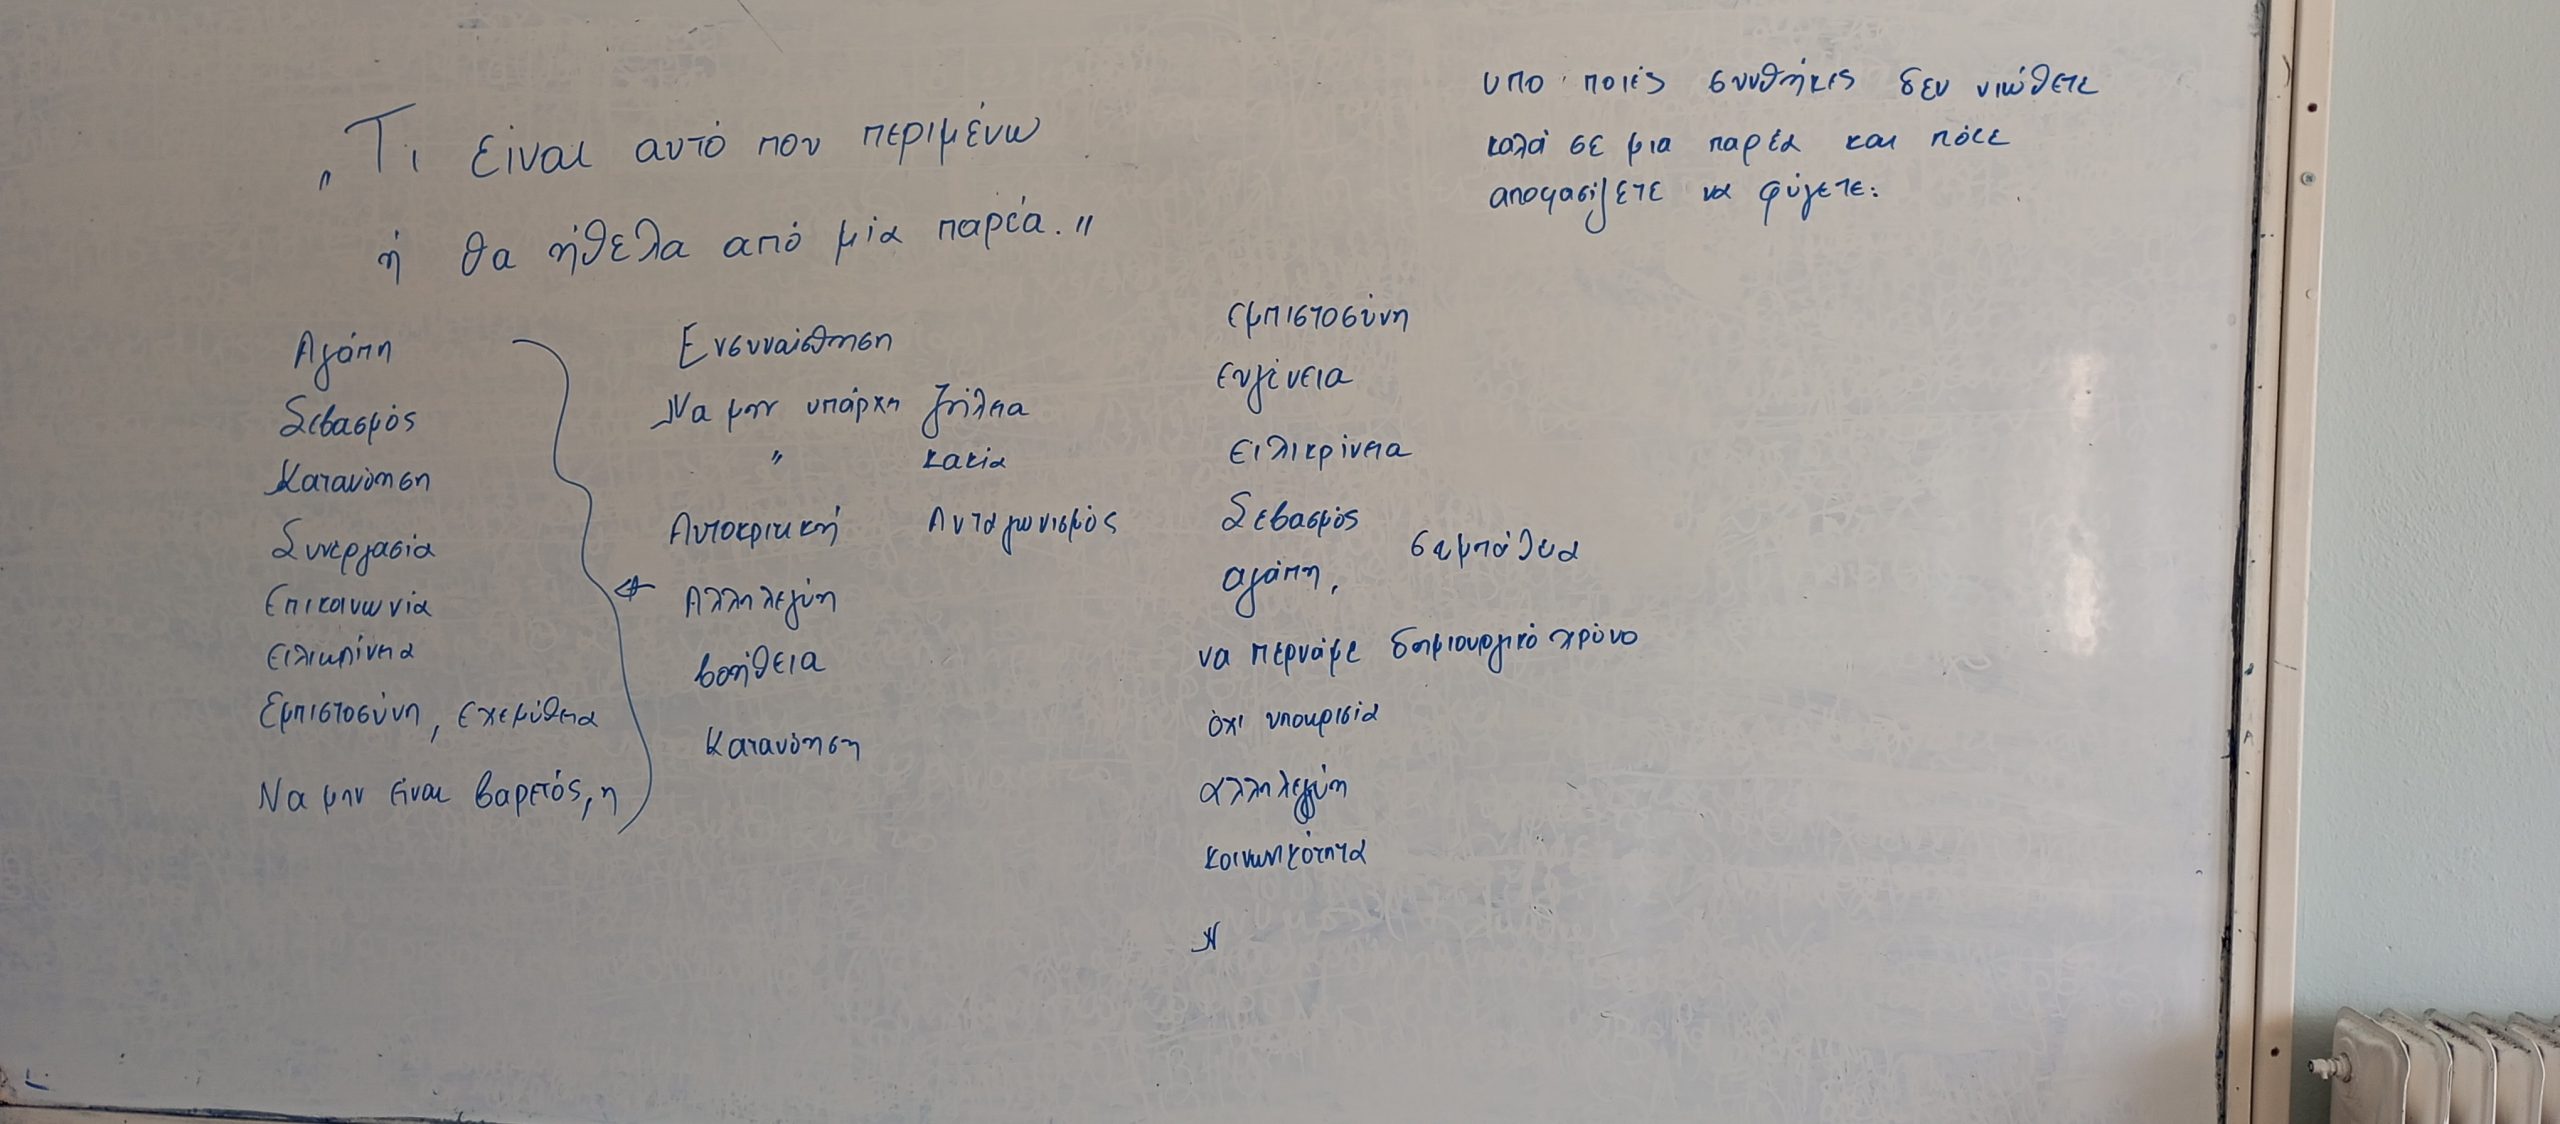 „Τι είναι αυτό που περιμένω
ή θα ήθελα από μία παρέα."
υπο ποιές συνθήκες δεν νιώθετε
καλά σε μια παρέα και πότε
αποφασίζετε να φύγετε:
Αγάπη
Σεβασμός
Κατανόηση
Συνεργασία
Επικοινωνία
ειλικρίνεια
Εμπιστοσύνη, εχεμύθεια
Να μην είναι βαρετός, η
Ενσυναίσθηση
Να μην υπάρχη ζήλεια
" κακία
Αυτοκριτική Ανταγωνισμός
Αλληλεγύη
βοήθεια
Κατανόηση
εμπιστοσύνη
ευγένεια
ειλικρίνεια
Σεβασμός
αγάπη, συμπάθεια
να περνάμε δημιουργικό χρόνο
όχι υποκρισία
αλληλεγύη
κοινωνικότητα
Ν